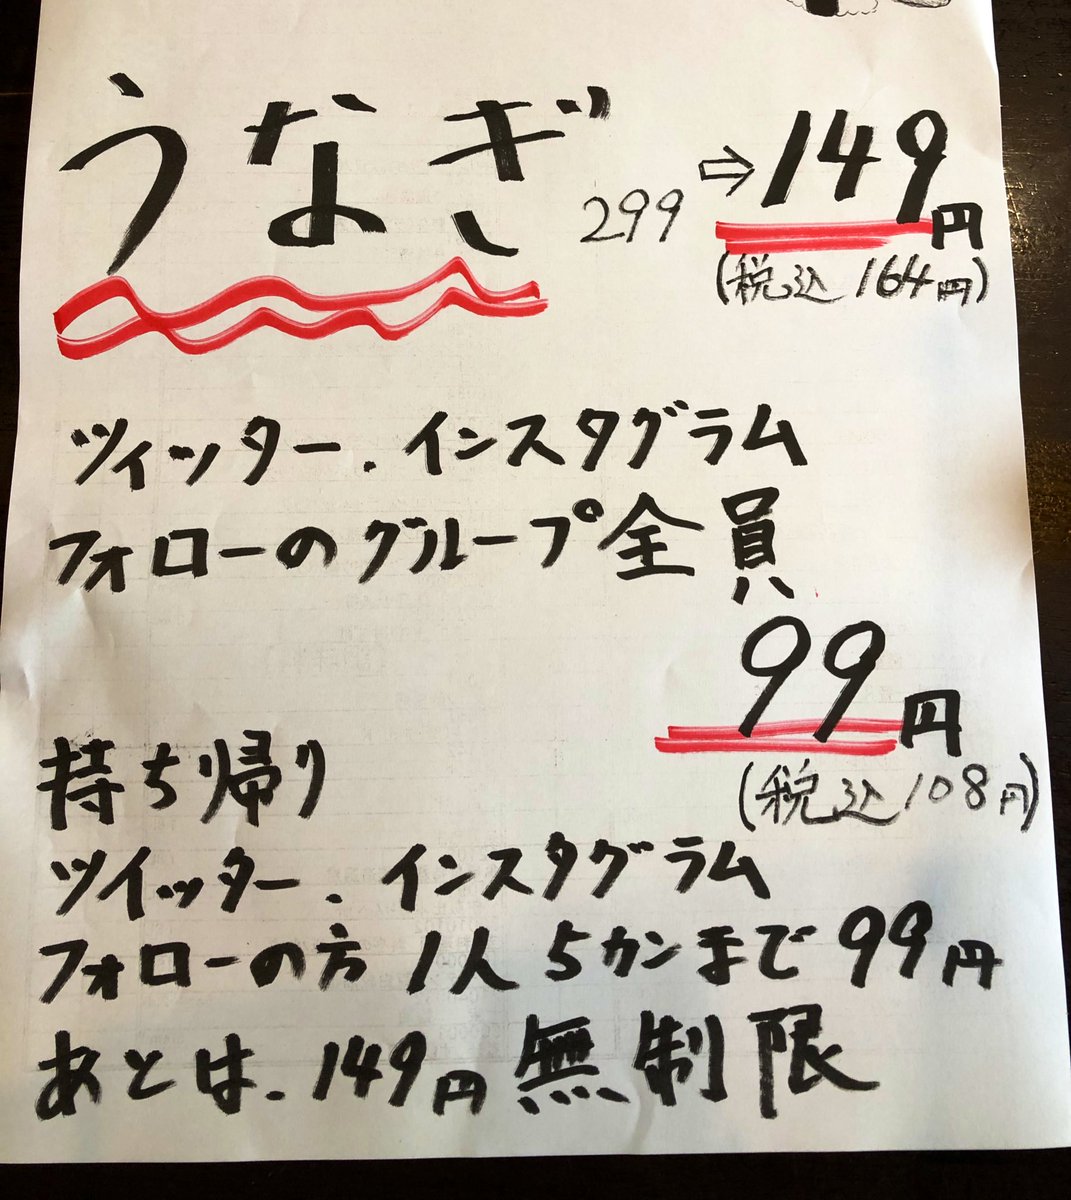 うなぎ 299 ⇨149円
(税込 164円)
ツィッター.インスタグラム
フォローのグループ全員
99円
(税込108円)
持ち帰り
ツイッター.インスタグラム
フォローの方 1人 5カンまで 99円
あとは.149円無制限